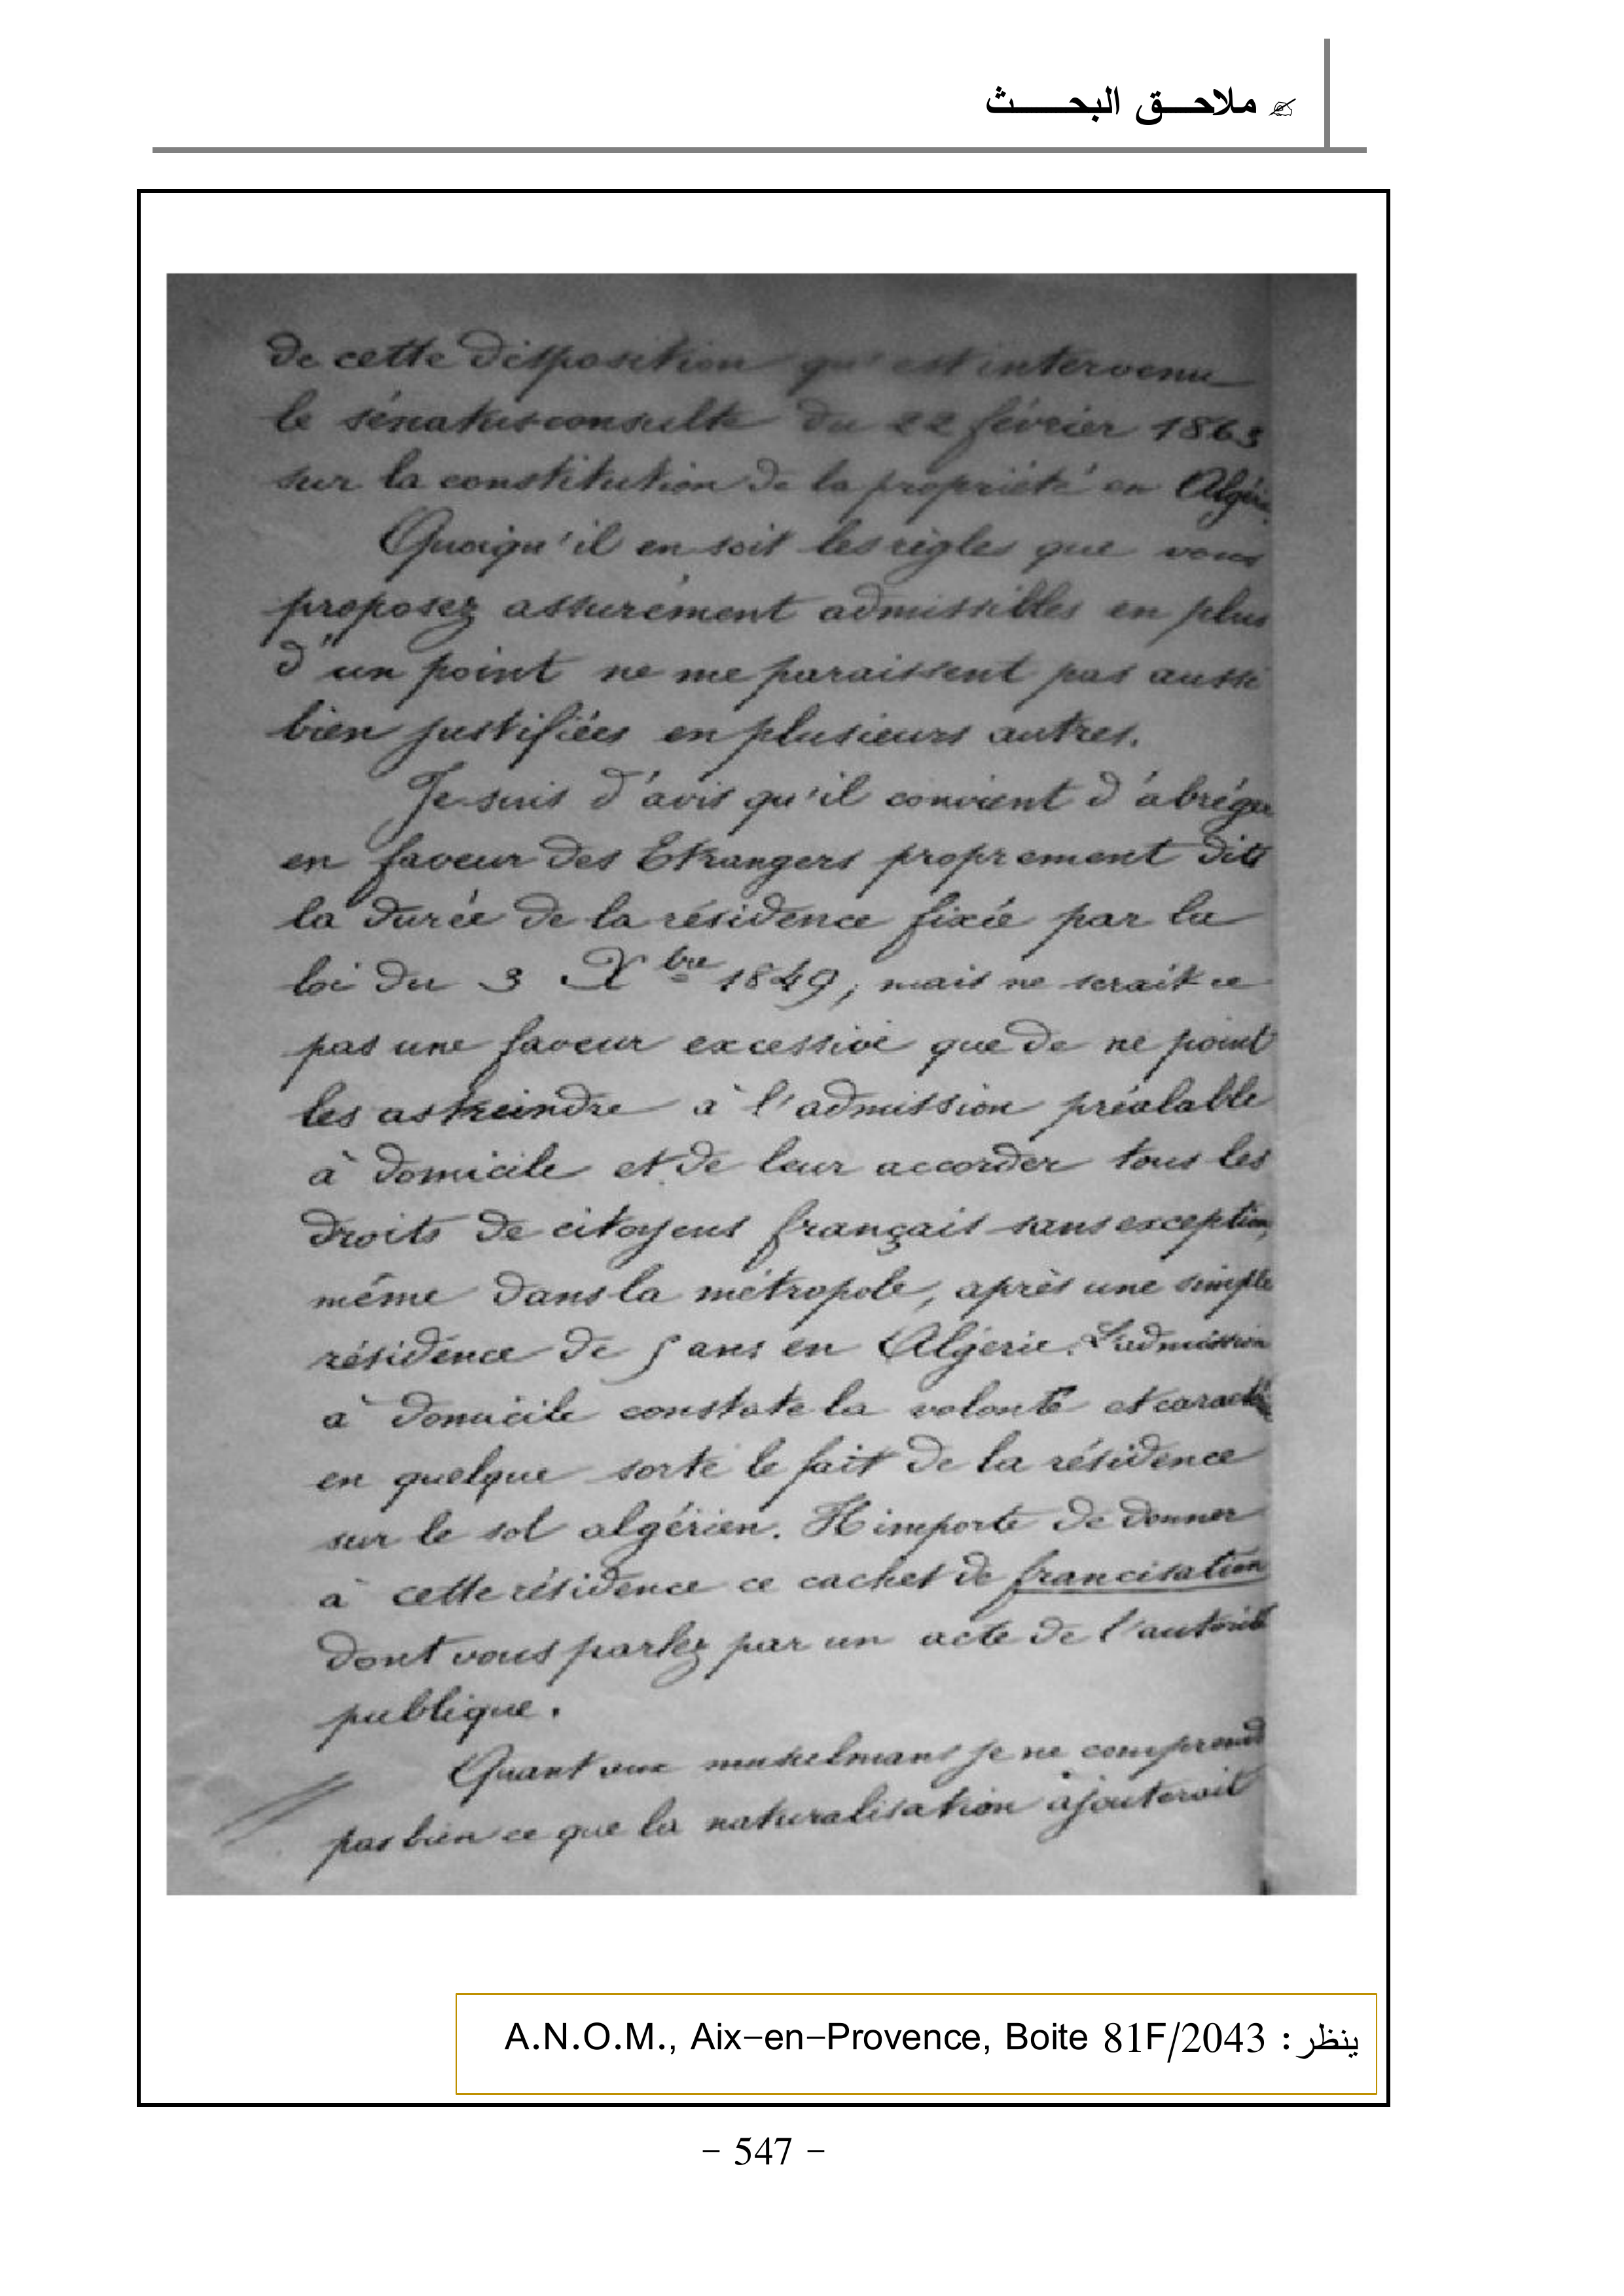 ملاحق البحث
de cette disposition qu'est intervenu
le sénatus consulte du 22 février 1863
sur la constitution de la propriété en Algérie
Quoiqu'il en soit les règles que vous
proposez assurément admissibles en plus
d'un point ne me paraissent pas aussi
bien justifiées en plusieurs autres.
Je suis d'avis qu'il convient d'abréger
en faveur des Etrangers proprement dits
la durée de la résidence fixée par la
loi du 3 Xbre 1849, mais ne serait ce
pas une faveur excessive que de ne point
les astreindre à l'admission préalable
à domicile et de leur accorder tous les
droits de citoyens français sans exception,
même dans la métropole, après une simple
résidence de 5 ans en Algérie. L'admission
à domicile constate la volonté et
en quelque sorte le fait de la résidence
sur le sol algérien. Il importe de donner
à cette résidence ce cachet de francisation
dont vous parlez par un acte de l'autorité
publique.
Quant aux musulmans je ne comprends
pas bien ce que la naturalisation ajouterait
ينظر: A.N.O.M., Aix-en-Provence, Boite 81F/2043
- 547 -